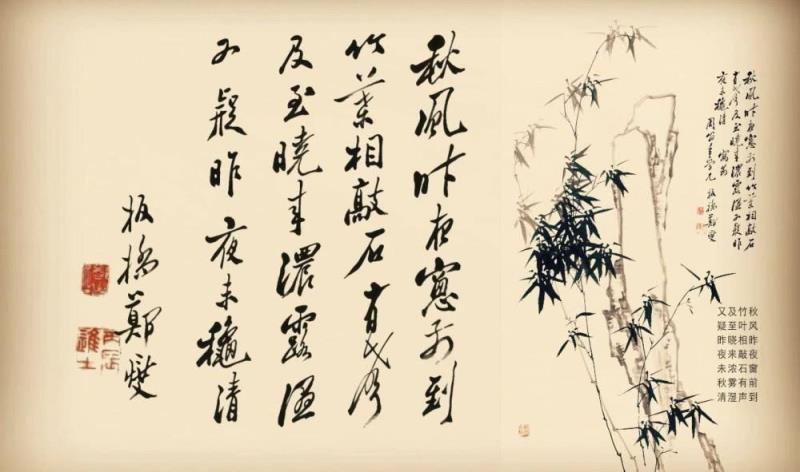 秋風昨夜窓前到
竹葉相敲石有聲
及至曉来濃露湿
又疑昨夜未穐清
板橋鄭燮
丙辰
進士
秋風昨夜窓前到竹葉相敲石
有聲及至曉来濃露湿又疑昨
夜未穐清
板橋鄭燮
秋风昨夜窗前到
竹叶相敲石有声
及至晓来浓雾湿
又疑昨夜未秋清